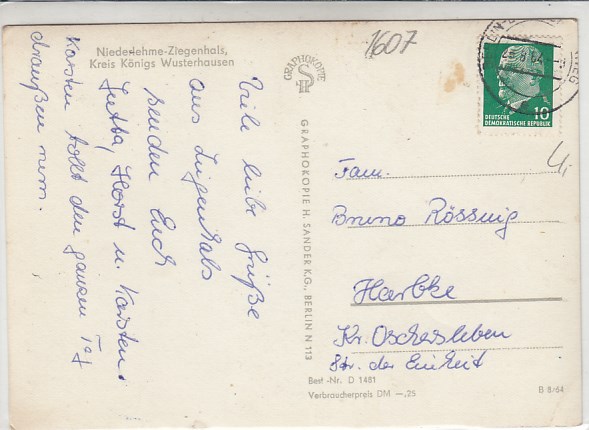 Niederlehme-Ziegenhals,
Kreis Königs Wusterhausen
Viele liebe Grüße
aus Ziegenhals
senden Euch
Jutta, Horst u. Karsten.
Karsten tollt den ganzen Tag
draußen rum.
GRAPHOKOPIE
GRAPHOKOPIE H. SANDER K.G., BERLIN N 113
1607
DEUTSCHE
DEMOKRATISCHE REPUBLIK
10
Fam.
Bruno Rössnig
Harbke
Kr. Oschersleben
Str. der Einheit
Best.-Nr. D 1481
Verbraucherpreis DM —,25
B 8/64